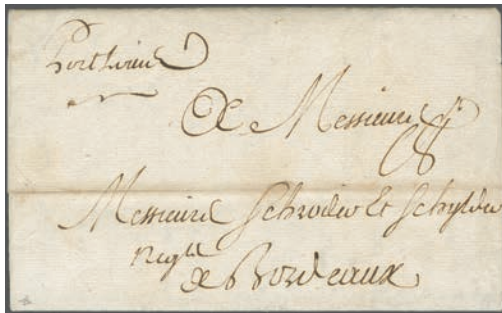 Port Louis
A Messieurs
Messieurs Schroder Et Schyler
Negts
de Bordeaux